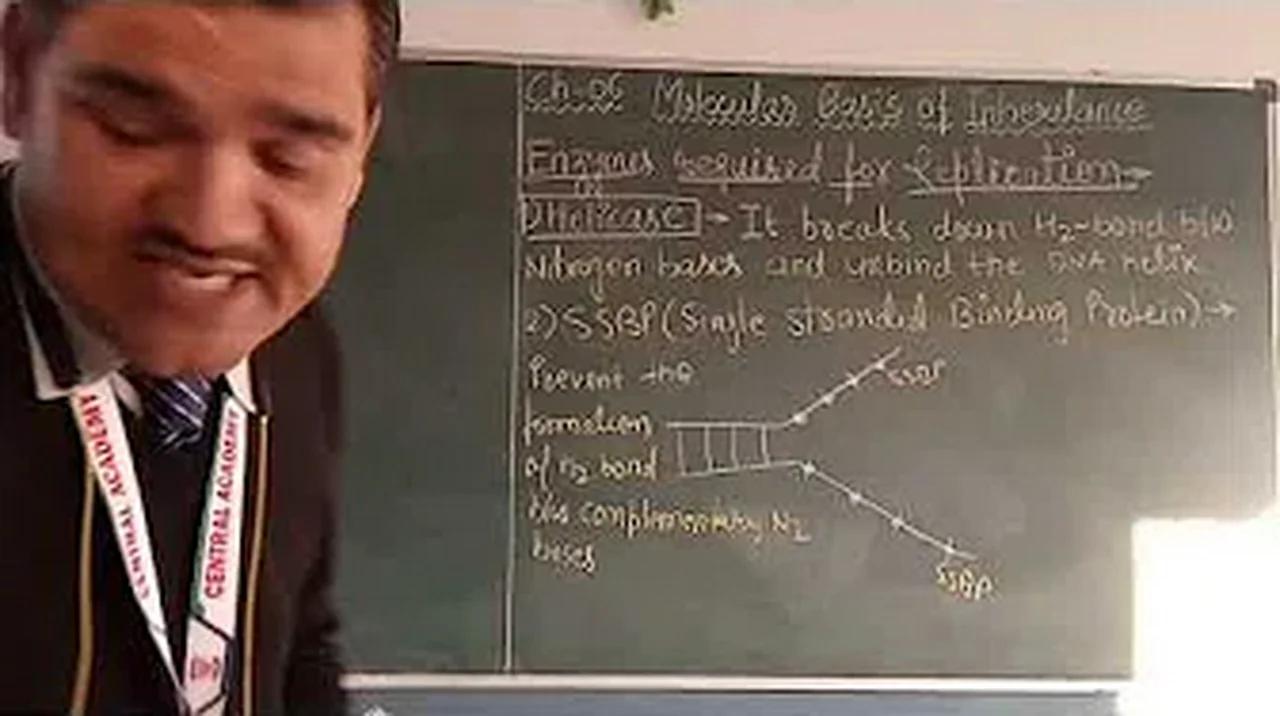 Ch:06 Molecular Basis of Inheritance
Enzymes required for Replication→
1) Helicase → It breaks down H2-bond b/w
Nitrogen bases and unbind the DNA helix
2) SSBP (Single stranded Binding Protein) →
Prevent the
formation
of H2 bond
b/w complementary N2
bases
SSBP
SSBP
CENTRAL ACADEMY
CENTRAL ACADEMY